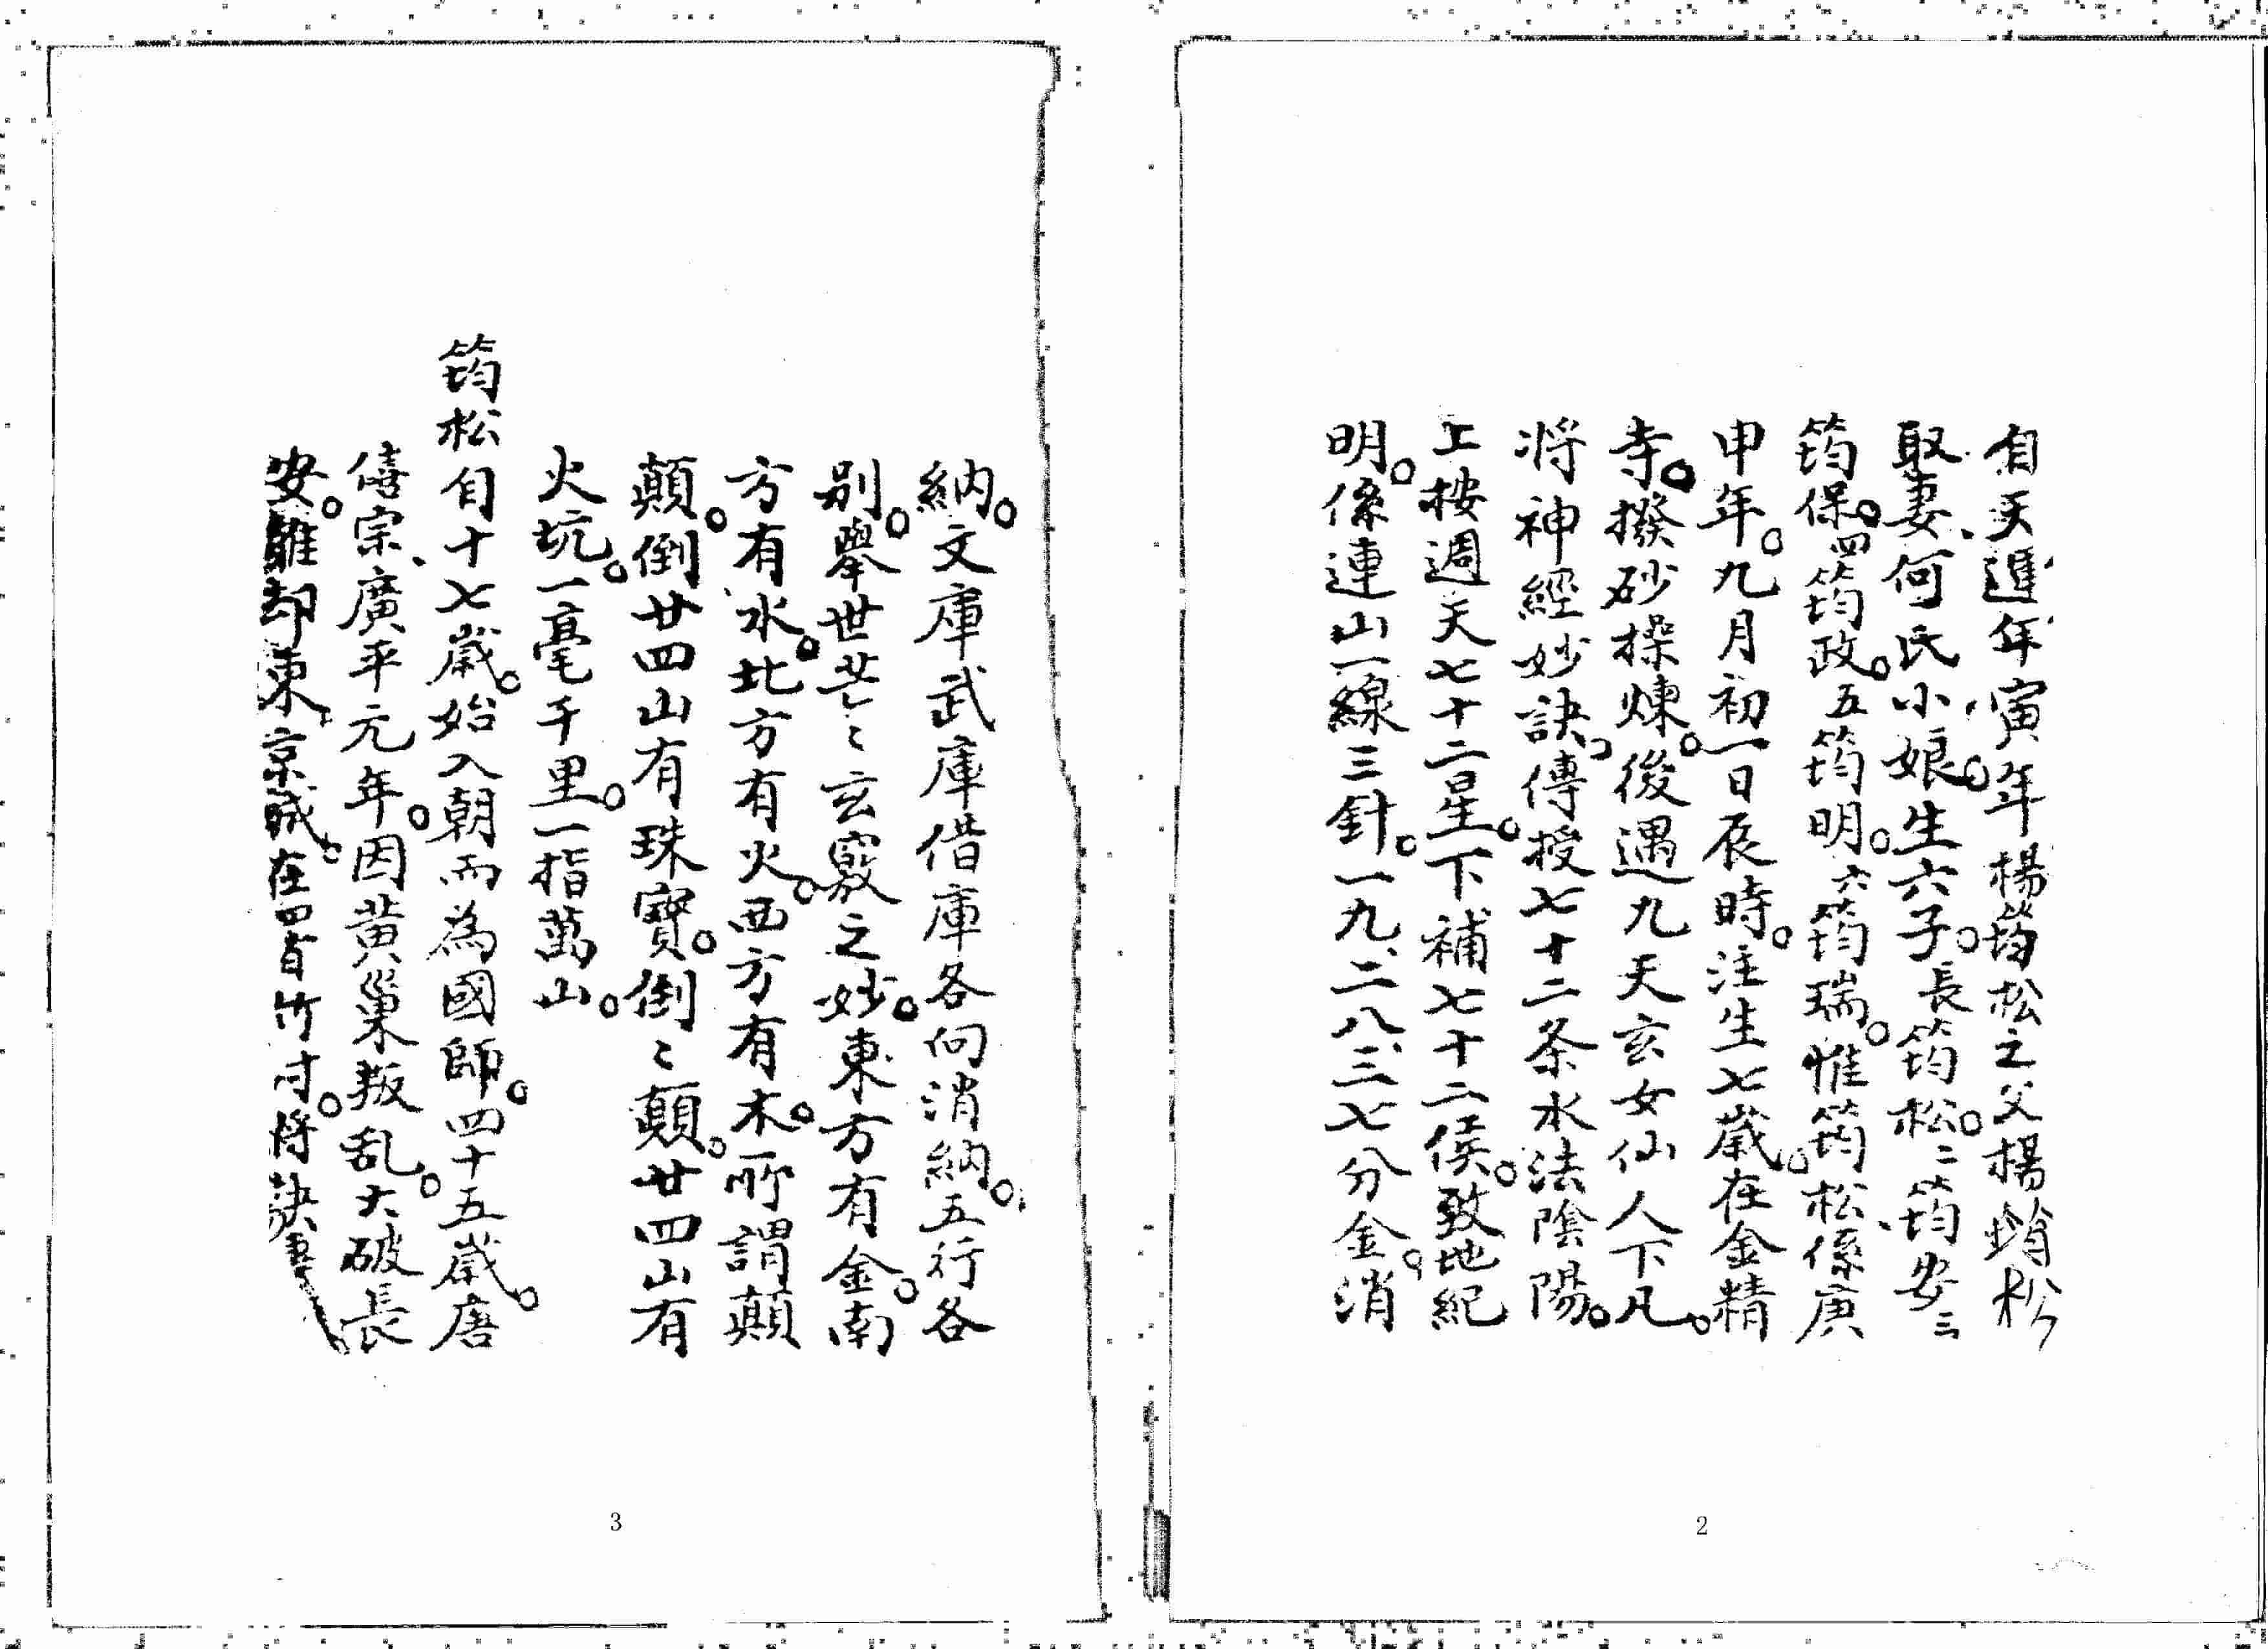 自天進年寅年楊筠松之父楊筠松
取妻何氏小娘。生六子。長筠松。二筠安三
筠保。四筠政。五筠明。六筠瑞。惟筠松係庚
申年。九月初一日辰時。注生七歲。在金精
寺。撥砂操煉。後遇九天玄女仙人下凡。
将神經妙訣。傳授七十二条水法陰陽。
上按週天七十二星。下補七十二侯。致地紀
明。係連山一線三針。一九、二八、三七分金。消
2
納。文庫武庫借庫各向消納。五行各
别。舉世茫〻玄竅之妙。東方有金。南
方有水。北方有火。西方有木。所謂顛
顛。倒廿四山有珠寶。倒〻顛。廿四山有
火坑。一毫千里。一指萬山。
筠松自十七歲。始入朝而為國師。四十五歲。唐
僖宗、廣平元年。因黄巢叛乱。大破長
安。雖却東京城。在四百竹寸。将訣書
3